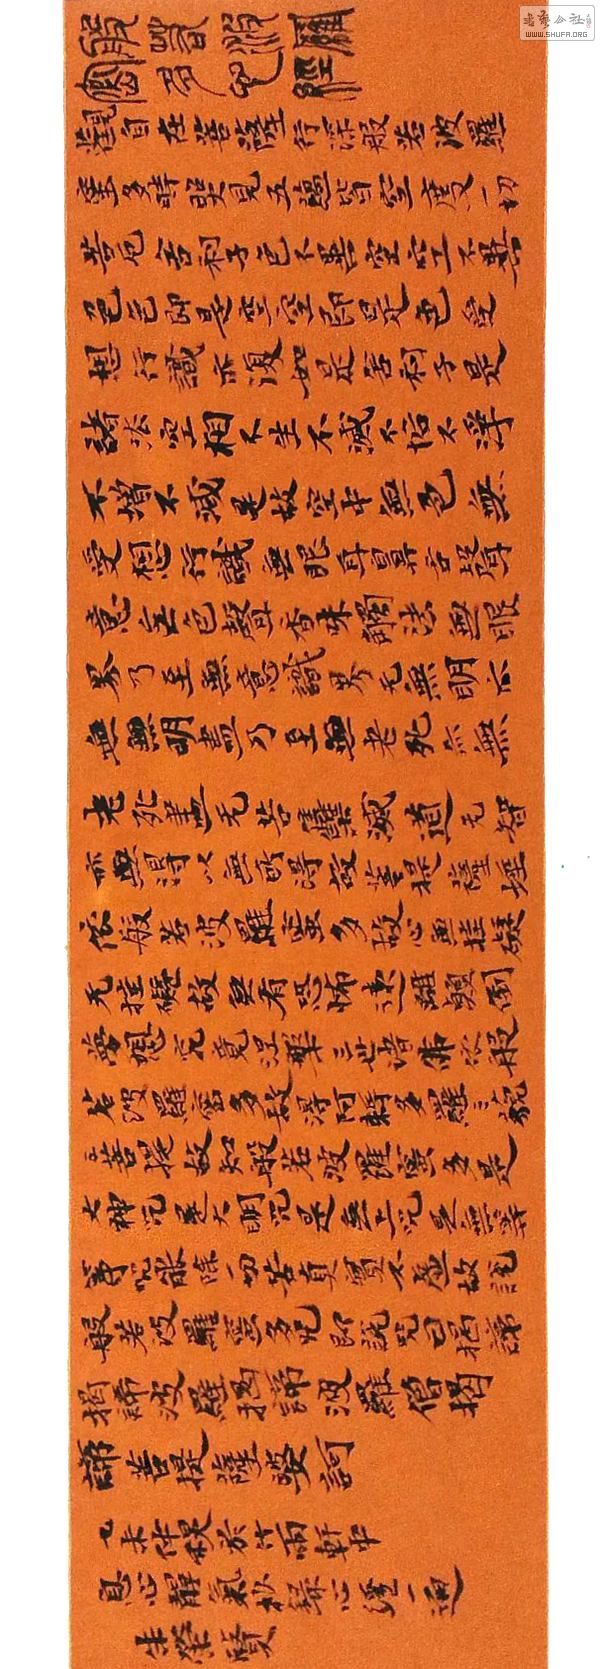 書藝公社
WWW.SHUFA.ORG
般若波羅
蜜多心經
觀自在菩薩行深般若波羅
蜜多時照見五蘊皆空度一切
苦厄舍利子色不異空空不異
色色即是空空即是色受
想行識亦復如是舍利子是
諸法空相不生不滅不垢不淨
不增不減是故空中無色無
受想行識無眼耳鼻舌身
意無色聲香味觸法無眼
界乃至無意識界无無明亦
無無明盡乃至無老死亦無
老死盡无苦集滅道无智
亦無得以無所得故菩提薩埵
依般若波羅蜜多故心無挂礙
无挂礙故無有恐怖遠離顛倒
夢想究竟涅槃三世諸佛依般
若波羅蜜多故得阿耨多羅三藐
三菩提故知般若波羅蜜多是
大神咒是大明咒是無上咒是無等
等咒能除一切苦真實不虛故說
般若波羅蜜多咒即說咒曰揭諦
揭諦波羅揭諦波羅僧揭
諦菩提薩婆訶
乙未仲秋於竹雨軒中
息心靜氣 錄心經一通
朱